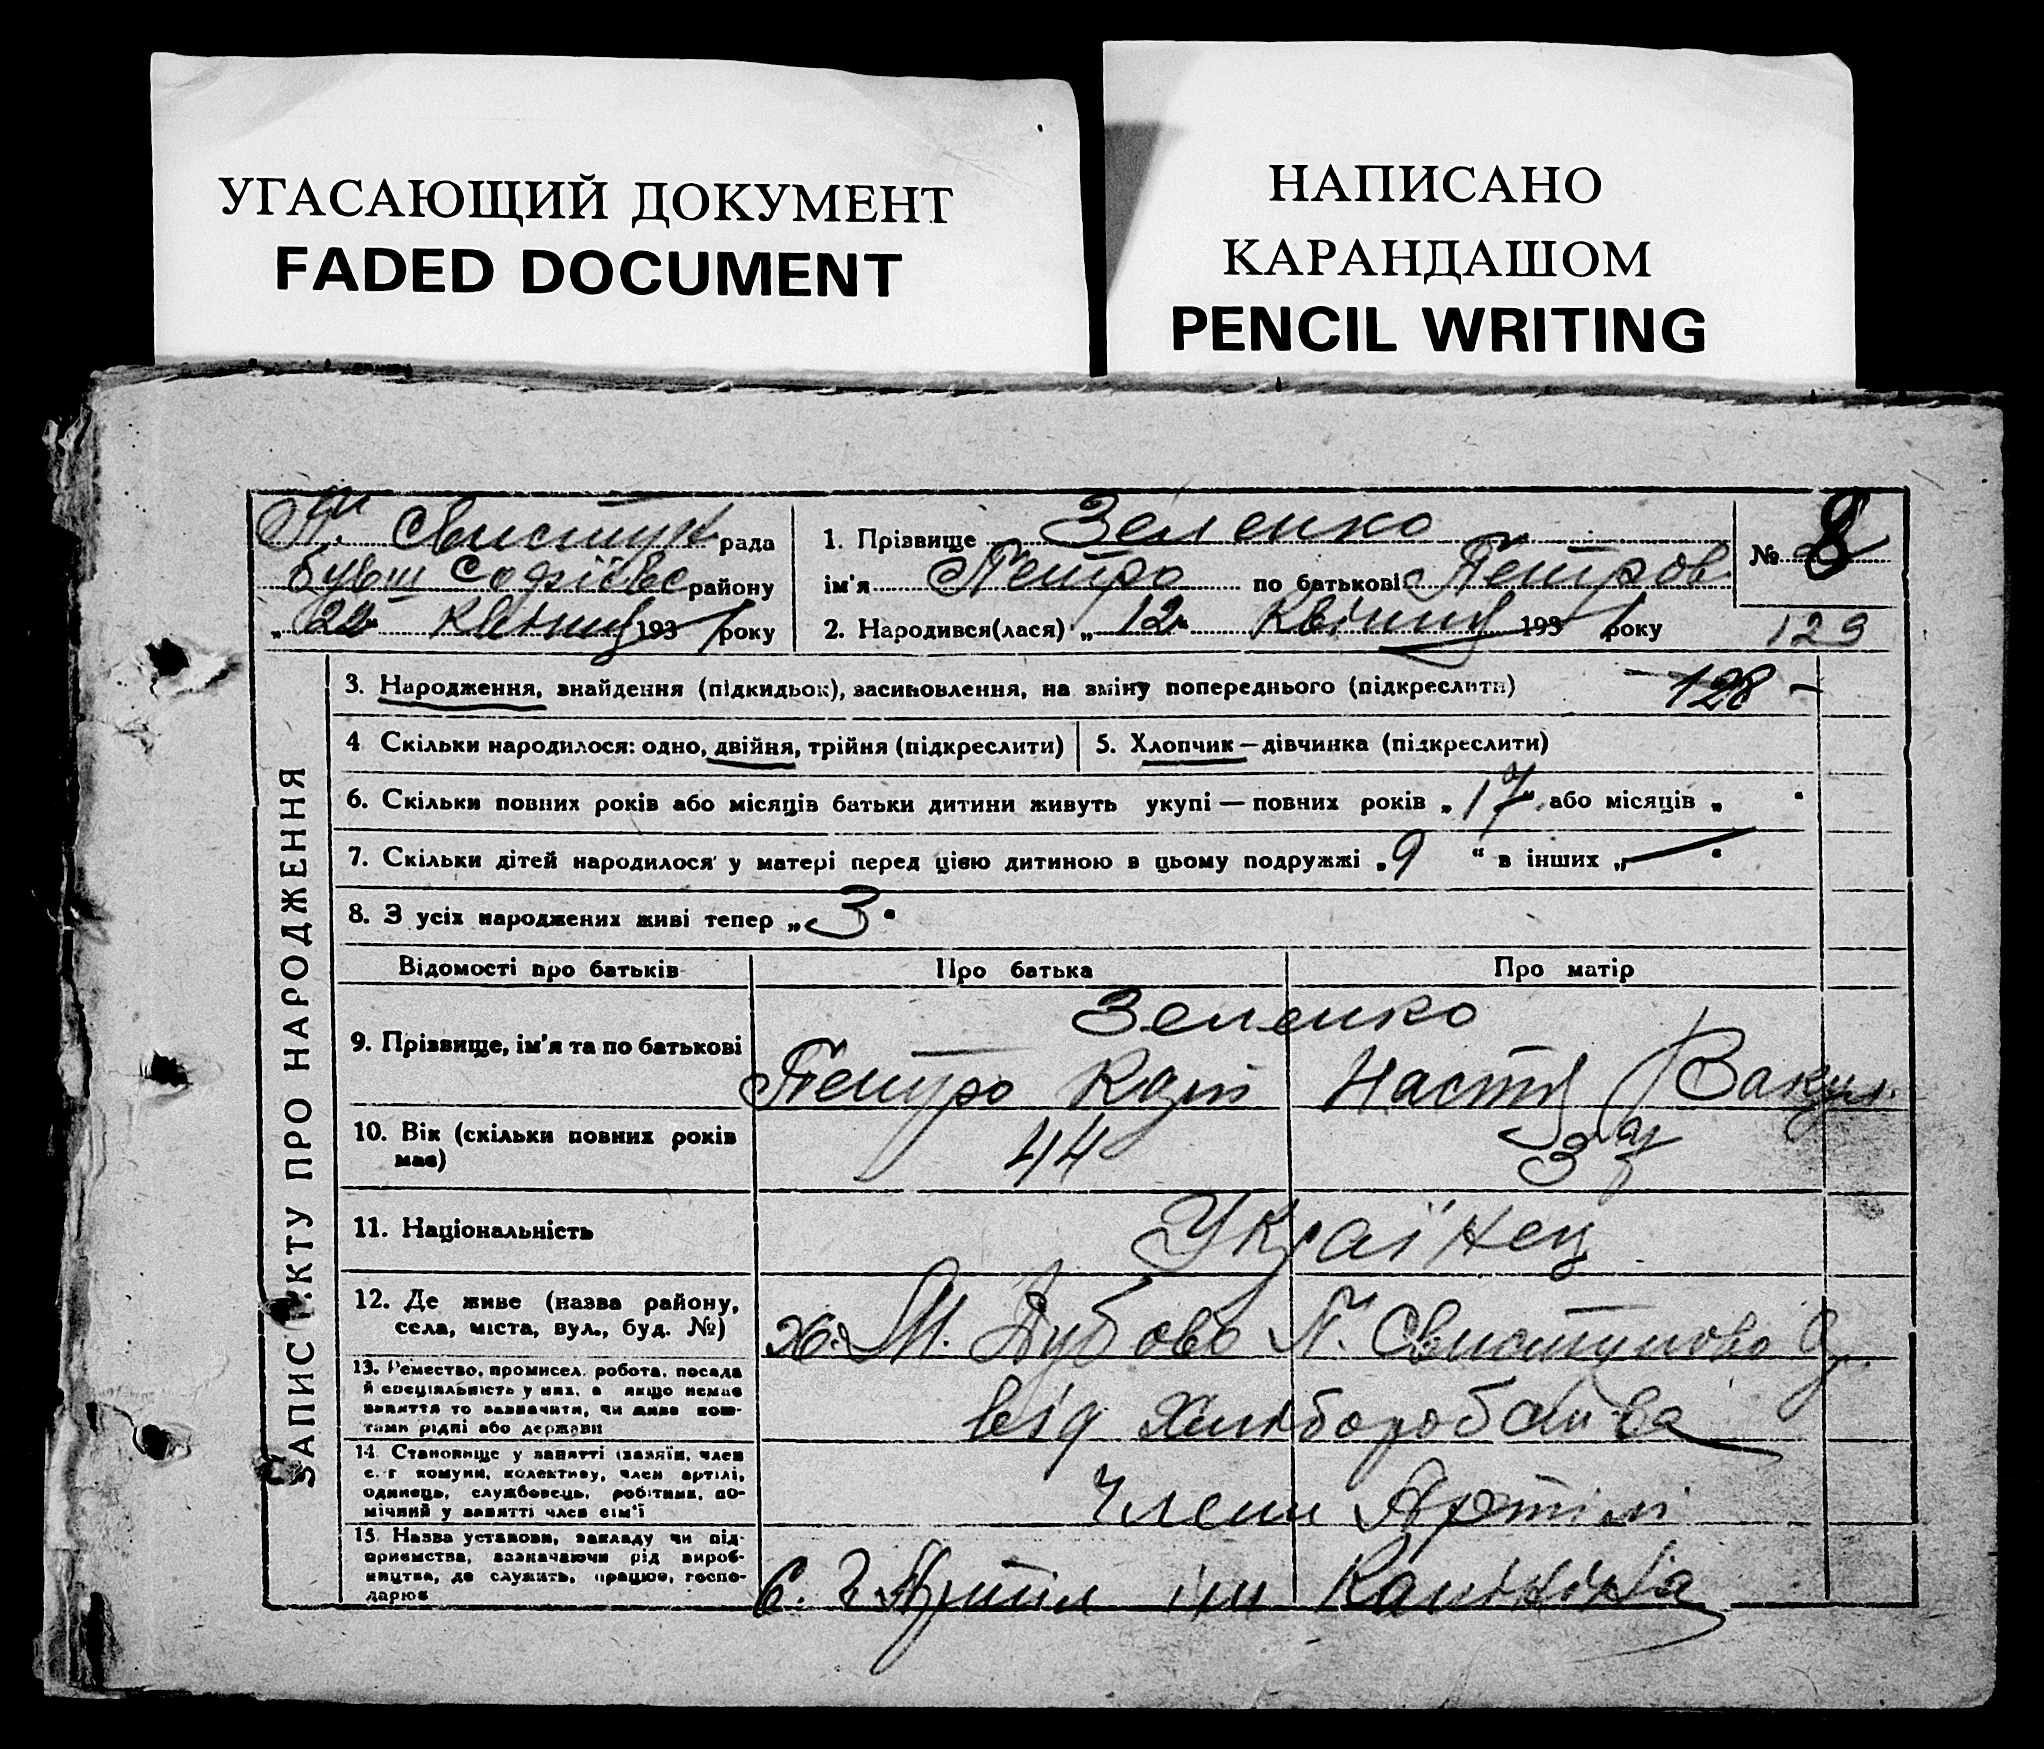 УГАСАЮЩИЙ ДОКУМЕНТ
FADED DOCUMENT
НАПИСАНО
КАРАНДАШОМ
PENCIL WRITING
ЗАПИС АКТУ ПРО НАРОДЖЕННЯ
Свистун рада
бувш Софієвс району
„22“ квітня 1931 року
1. Прізвище Зеленко
ім'я Петро по батькові Петров.
2. Народився(лася) „12“ Квітня 1931 року
№ 8
129
3. Народження, знайдення (підкидьок), засиновлення, на зміну попереднього (підкреслити) 128 –
4 Скільки народилося: одно, двійня, трійня (підкреслити)
5. Хлопчик — дівчинка (підкреслити)
6. Скільки повних років або місяців батьки дитини живуть укупі — повних років „17“ або місяців „ “
7. Скільки дітей народилося у матері перед цією дитиною в цьому подружжі „9 “ в інших „—“
8. З усіх народжених живі тепер „3“
Відомості про батьків
Про батька
Про матір
9. Прізвище, ім'я та по батькові
Зеленко
Петро
Настя Вакул.
10. Вік (скільки повних років
має)
44
37
11. Національність
Українец
12. Де живе (назва району,
села, міста, вул., буд. №)
х. М. Дубово Н. Свистуново
13. Ремество, промисел. робота, посада
й спеціяльність у них, а якщо немає
заняття то зазначити, чи живе кош-
тами рідні або держави
від хліборобства
14. Становище у занятті (хазяїн, член
с. г комуни, колективу, член артілі,
одинець, службовець, робітник, по-
мічний у занятті член сім'ї
Члени Артілі
15. Назва установи, закладу чи під-
приємства, зазначаючи рід вироб-
ництва, де служить, працює, госпо-
дарює
С. Г. Артіл ім Калініна